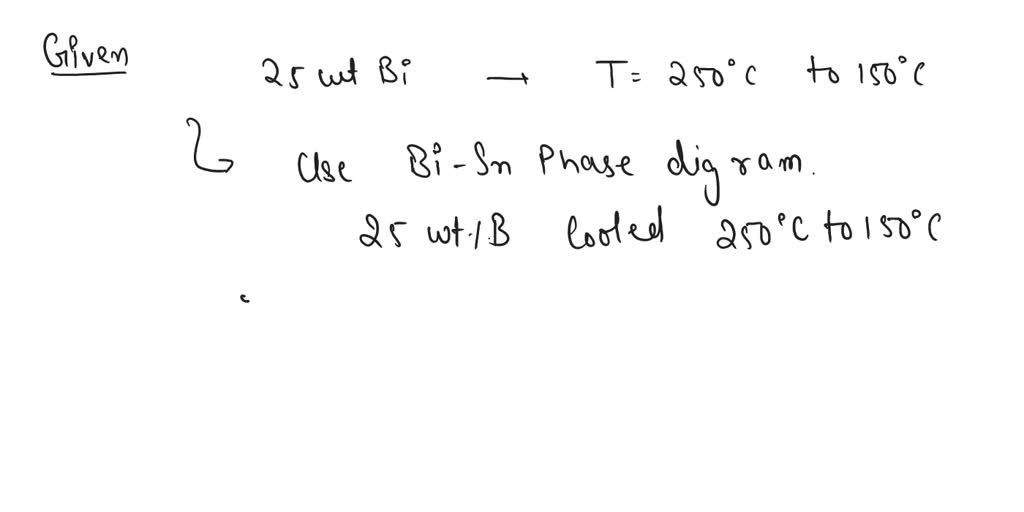 Given
25 wt Bi → T= 250°C to 150°C
Use Bi-Sn Phase digram.
25 wt./B Cooled 250°C to 150°C